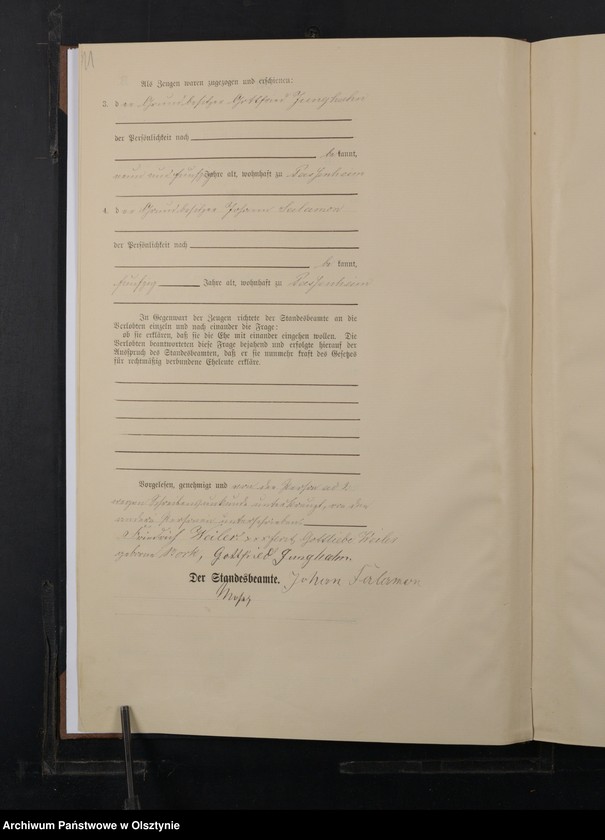 Als Zeugen waren zugezogen und erschienen:
3. der Grundbesitzer Gottfried Junghahn
der Persönlichkeit nach
be kannt,
neun und fünfzig Jahre alt, wohnhaft zu Passenheim
4. der Grundbesitzer Johann Salamon
der Persönlichkeit nach
be kannt,
fünfzig Jahre alt, wohnhaft zu Passenheim
In Gegenwart der Zeugen richtete der Standesbeamte an die
Verlobten einzeln und nach einander die Frage:
ob sie erklären, daß sie die Ehe mit einander eingehen wollen. Die
Verlobten beantworteten diese Frage bejahend und erfolgte hierauf der
Ausspruch des Standesbeamten, daß er sie nunmehr kraft des Gesetzes
für rechtmäßig verbundene Eheleute erkläre.
Vorgelesen, genehmigt und von der Person ad
wegen Schreibensunkunde unterkreuzt, von den
anderen Personen unterschrieben
Gottliebe
geborene Gottfried Junghahn.
Der Standesbeamte. Johann Salamon